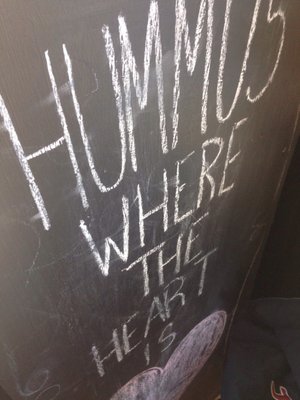 HUMMUS
WHERE
THE
HEART
IS